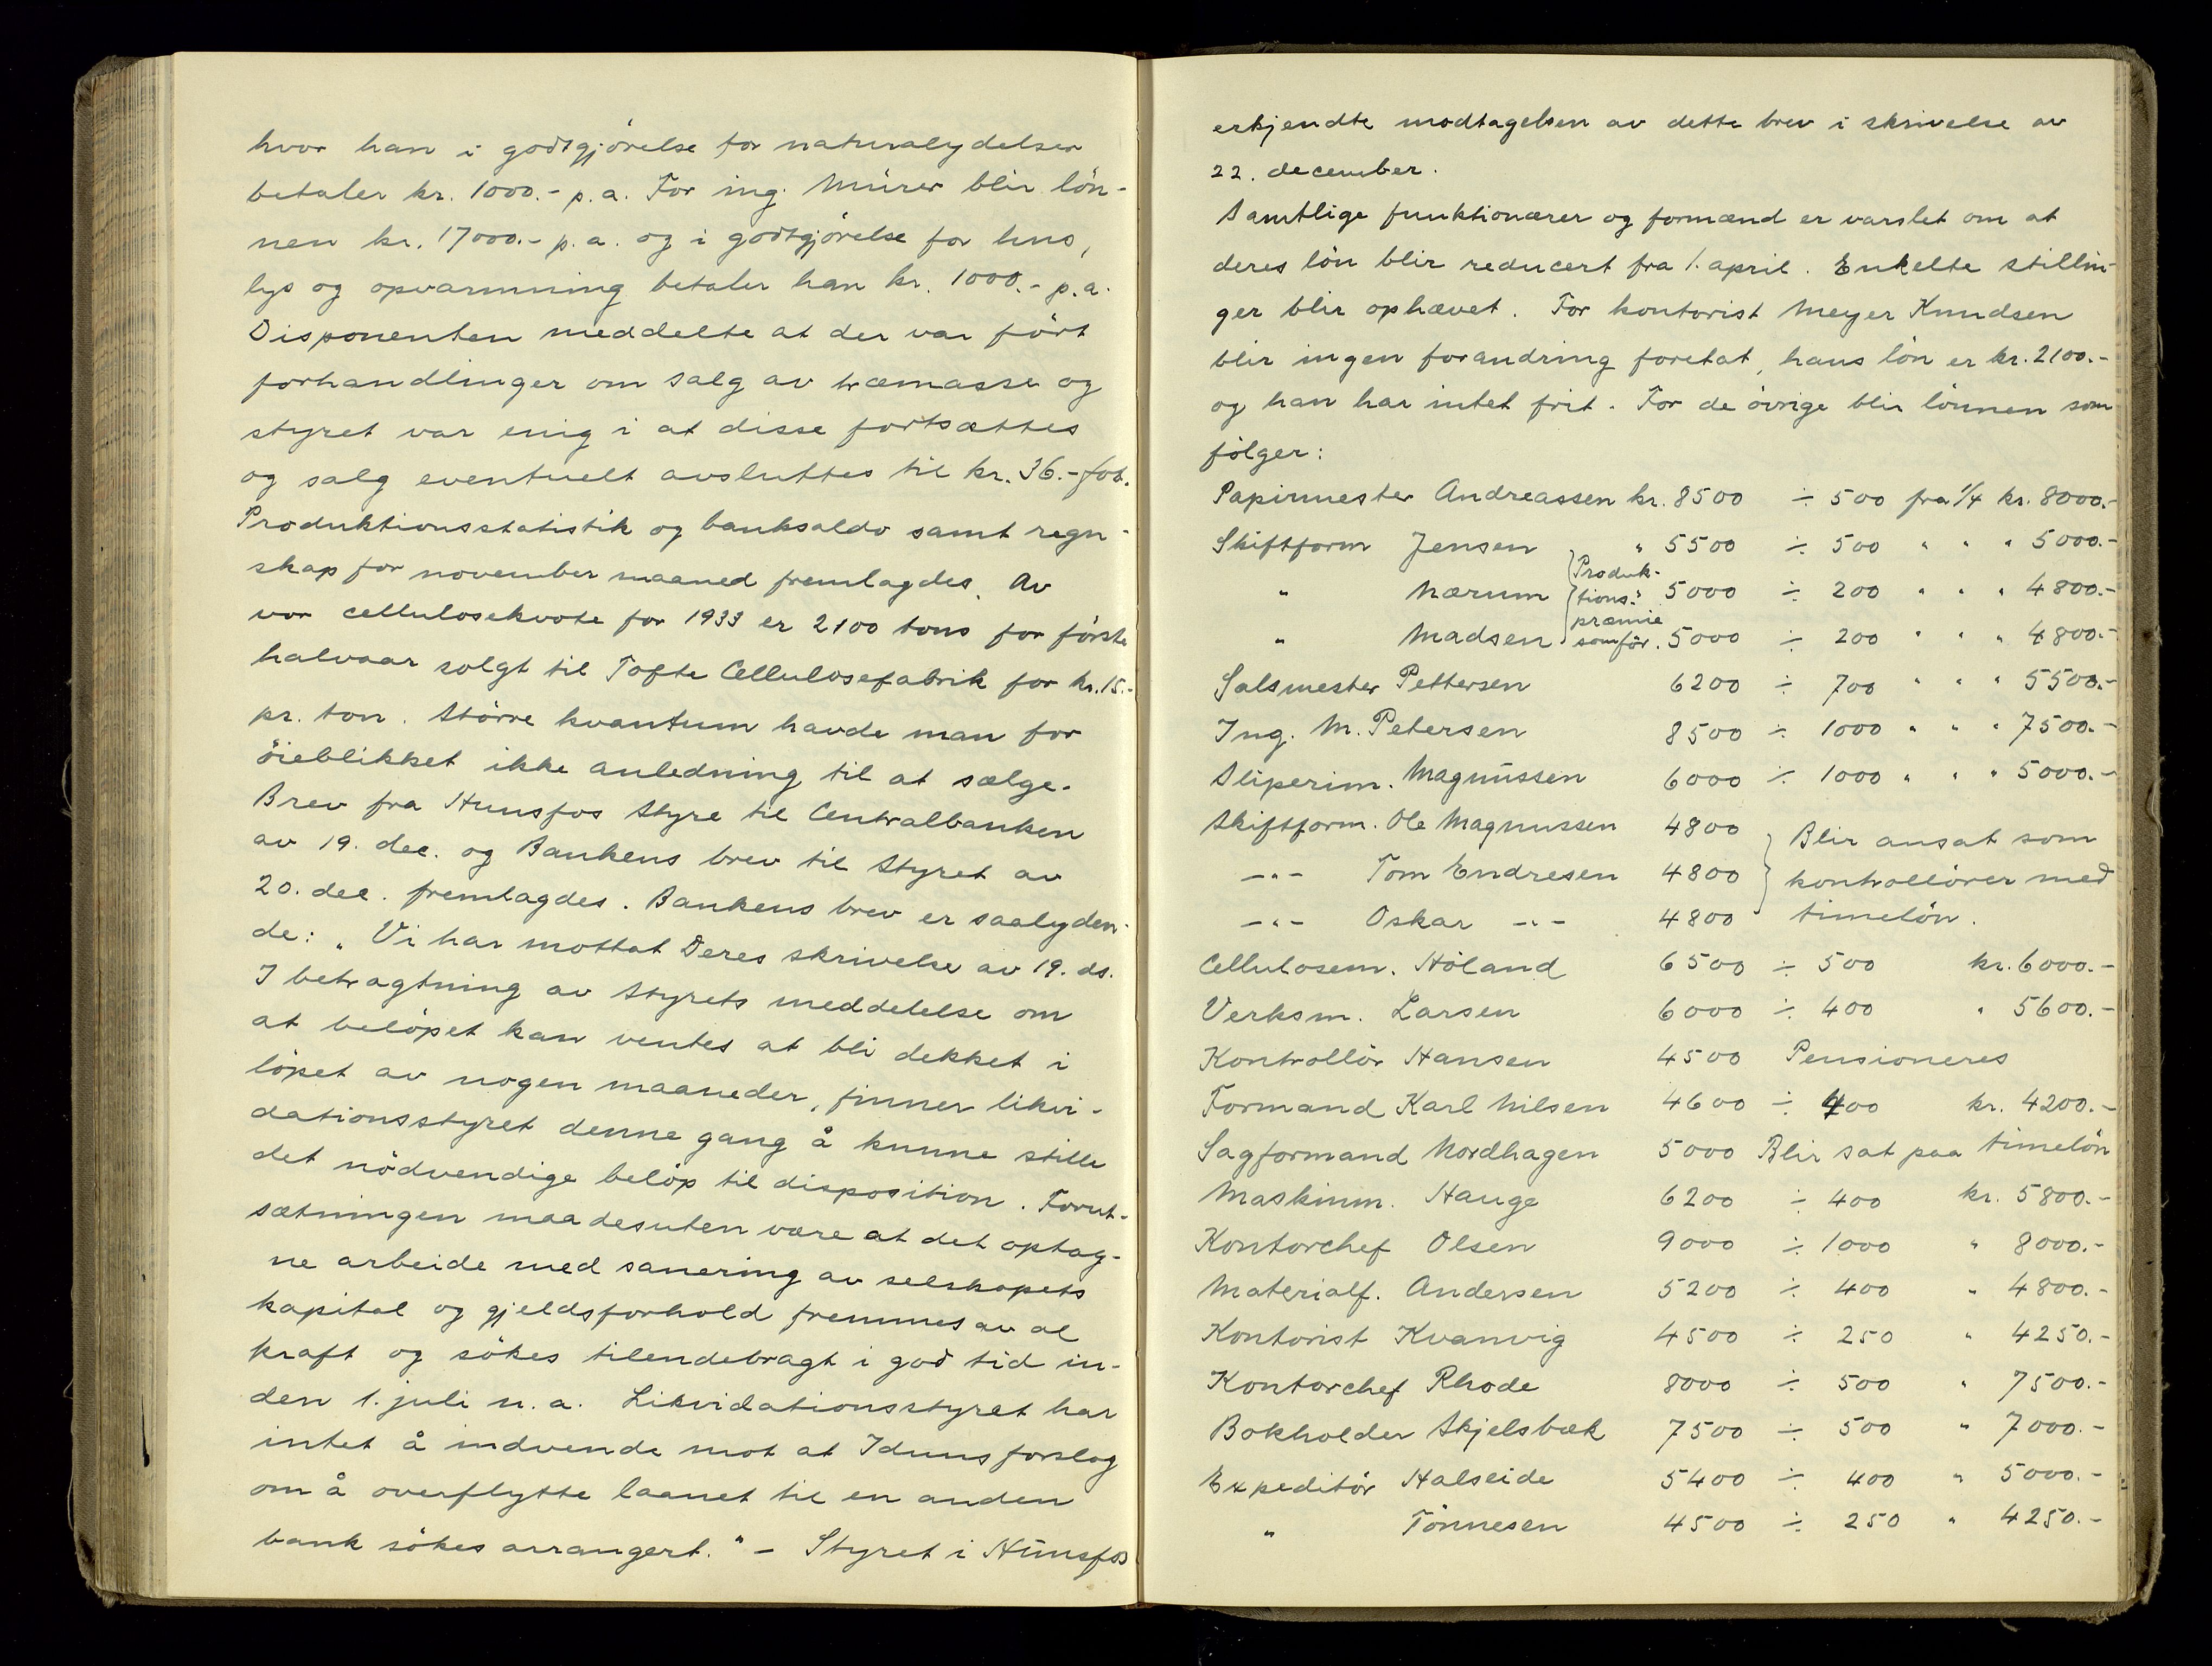 hvor han i godtgjörelse for naturalydelser
betaler kr. 1000.- p.a. For ing. Mürer blir lön-
nen kr. 17000.- p.a. og i godtgjörelse for hus,
lys og opvarmning betaler han kr. 1000.- p.a.
Disponenten meddelte at der var fört
forhandlinger om salg av træmasse og
styret var enig i at disse fortsættes
og salg eventuelt avsluttes til kr. 36.- fob.
Produktionsstatistik og banksaldo samt regn-
skap for november maaned fremlagdes. Av
vor cellulosekvote for 1933 er 2100 tons for förste
halvaar solgt til Tofte Cellulosefabrik for kr. 15.-
pr. ton. Större kvantum havde man for
öieblikket ikke anledning til at sælge.
Brev fra Hunsfos Styre til Centralbanken
av 19. dec. og Bankens brev til Styret av
20. dec. fremlagdes. Bankens brev er saalyden-
de: „Vi har mottat Deres skrivelse av 19. ds.
I betragtning av Styrets meddelelse om
at belöpet kan ventes at bli dekket i
löpet av nogen maaneder, finner likvi-
dationsstyret denne gang å kunne stille
det nödvendige belöp til disposition. Forut-
sætningen maa desuten være at det optag-
ne arbeide med sanering av selskapets
kapital og gjeldsforhold fremmes av al
kraft og sökes tilendebragt i god tid in-
den 1. juli n. a. Likvidationsstyret har
intet å indvende mot at Iduns forslag
om å overflytte laanet til en anden
bank sökes arrangert." - Styret i Hünsfos
erkjendte modtagelsen av dette brev i skrivelse av
22. december.
Samtlige funktionærer og formænd er varslet om at
deres lön blir reducert fra 1. april. Enkelte stillin-
ger blir ophævet. For kontorist Meyer Knudsen
blir ingen forandring foretat, hans lön er kr. 2100.-
og han har intet frit. For de övrige blir lönnen som
fölger:
Papirmester Andreassen kr. 8500 ÷ 500 fra 1/4 kr. 8000.-
Skiftform Jensen " 5500 ÷ 500 " " " 5000.-
" Nærum { Produk-tions-præmie som för. " 5000 ÷ 200 " " " 4800.-
" Madsen 5000 ÷ 200 " " " 4800.-
Salsmester Pettersen 6200 ÷ 700 " " " 5500.-
Ing. M. Petersen 8500 ÷ 1000 " " " 7500.-
Sliperim. Magnüssen 6000 ÷ 1000 " " " 5000.-
Skiftform. Ole Magnussen 4800 } Blir ansat som
-"- Tom Endresen 4800 } kontrollörer med
-"- Oskar -"- 4800 } timelön.
Cellulosem. Höland 6500 ÷ 500 kr. 6000.-
Verksm. Larsen 6000 ÷ 400 " 5600.-
Kontrollör Hansen 4500 Pensioneres
Formand Karl Nilsen 4600 ÷ 400 kr. 4200.-
Sagformand Nordhagen 5000 Blir sat paa timelön
Maskinm. Hauge 6200 ÷ 400 kr. 5800.-
Kontorchef Olsen 9000 ÷ 1000 " 8000.-
Materialf. Andersen 5200 ÷ 400 " 4800.-
Kontorist Kvanvig 4500 ÷ 250 " 4250.-
Kontorchef Rhode 8000 ÷ 500 " 7500.-
Bokholder Skjelsbæk 7500 ÷ 500 " 7000.-
Expeditör Halseide 5400 ÷ 400 " 5000.-
" Tönnesen 4500 ÷ 250 " 4250.-